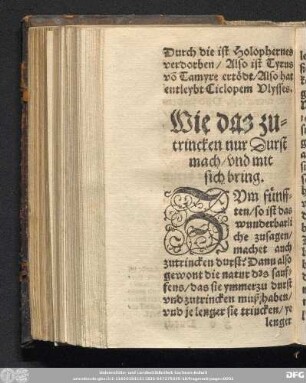 Durch die ist Holophernes
verdorben / Also ist Tyrus
võ Tamyre ertödt / Also hat
entleybt Ciclopem Vlysses.
Wie daz zu-
trincken nur Durst
mach / vnd mit
sich bring.
ZVm fünff-
ten / so ist das
wunderbarli
che zusagen /
machet auch
zutrincken durst? Dann also
gewont die natur das sauf-
fens / das sie ymmerzu durst
vnd zutrincken muß haben /
vnd je lenger sie trincken / ye
lenger